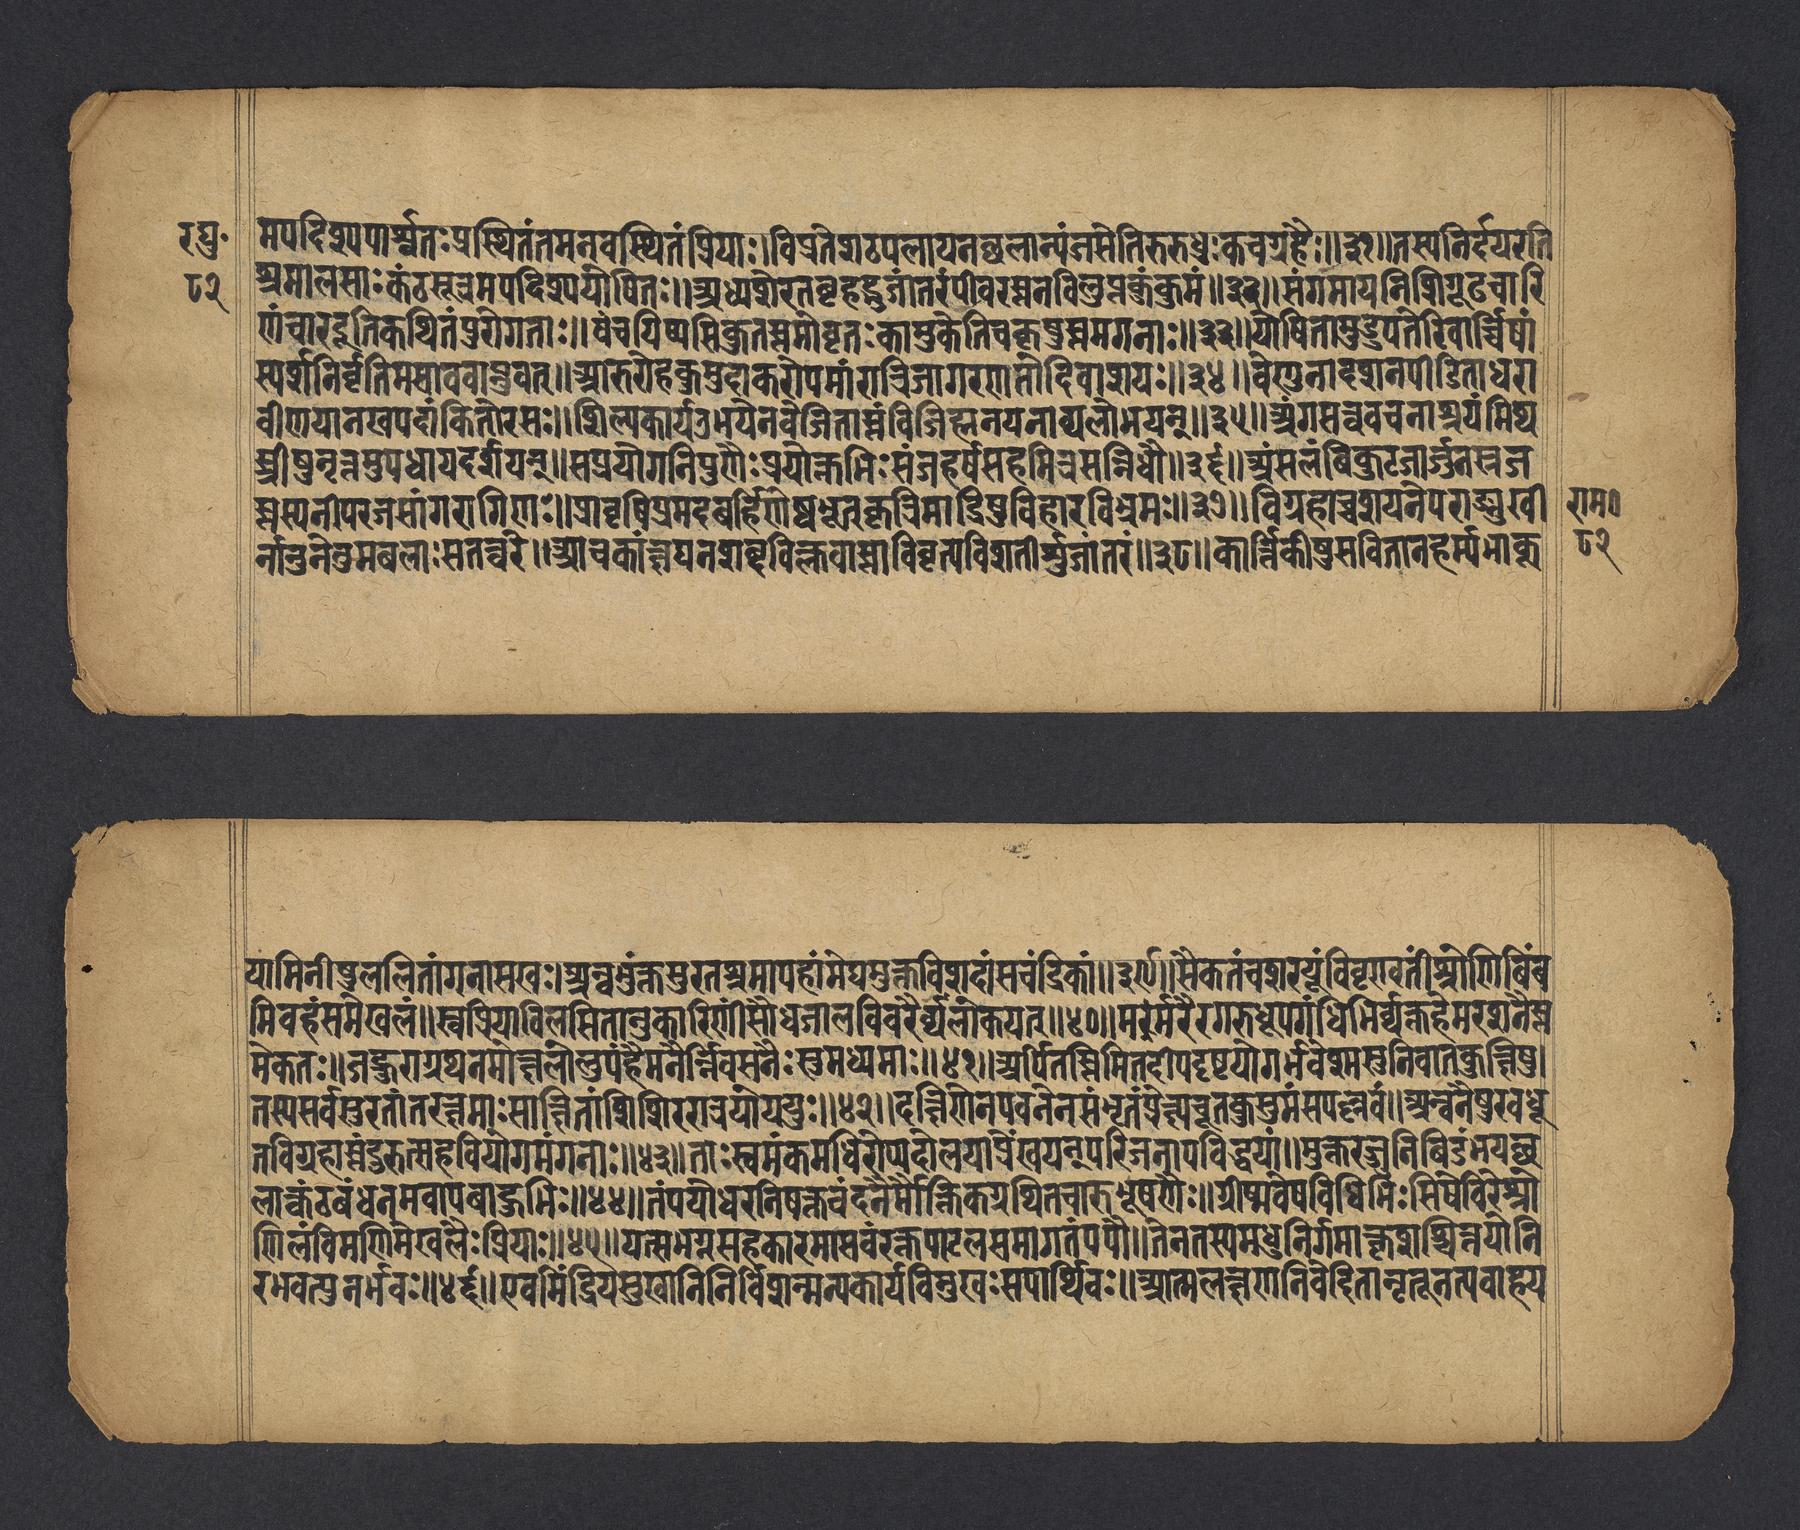 रघु॰
मपदिश्यपार्श्वतःप्रस्थितंतमनवस्थितंप्रियाः।विप्रतेशठपलायनछलान्यंजसेतिरुरुधुःकचग्रहैः॥३१॥तस्यनिर्दयरति
८२
श्रमालसाःकंठसूत्रमपदिश्ययोषितः॥अध्यशेरतबृहद्भुजांतरंपीवरस्तनविलुप्तकुंकुमं॥३२॥संगमायनिशिगूढचारि
णंचारदूतिकथितंपुरोगताः॥वंचयिष्यसिकुतस्तमोवृतःकामुकेतिचकृषुस्तमगनाः॥३३॥योषितामुडुपतेरिवार्च्चिषां
स्पर्शनिर्वृतिमसाववाप्नुवन्॥आरुरोहकुमुदाकरोपमांरात्रिजागरणतोदिवाशयः॥३४॥वेणुनादशनपीडिताधरा
वीणयानखपदांकितोरसः॥शिल्पकार्यउभयेनवेजितास्तंविजिह्मनयनाव्यलोभयन्॥३५॥अंगसत्ववचनाश्रयंमिथ
स्त्रीषुनृत्तमुपधायदर्शयन्॥सप्रयोगनिपुणैःप्रयोक्तभिःसंजहर्षसहमित्रसन्निधौ॥३६॥अंसलंबिकुटजार्जुनस्रज
स्तस्यनीपरजसांगरागिणः॥प्रावृषिप्रमदबर्हिणेष्वभूत्कृत्रिमाद्रिषुविहारविभ्रमः॥३७॥विग्रहाच्चशयनेपराङ्मुखी
राम॰
र्नानुनेतुमबलाःसतत्वरे॥आचकांक्षघनशब्दविक्लवास्ताविवृत्यविशतीर्भुजांतरं॥३८॥कार्त्तिकीषुसवितानहर्म्यभाक्
८२
यामिनीषुललितांगनासखः।अन्वभुंक्तसुरतश्रमापहांमेघमुक्तविशदांसचंद्रिकां॥३९॥सैकतंचशरयूंविवृण्वतींश्रोणिबिंब
मिवहंसमेखलं॥स्वप्रियाविलसितानुकारिणींसौधजालविवरैर्व्यलोकयत्॥४०॥मर्मरैरगरुधूपगंधिभिर्व्यक्तहेमरशनैस्त
मेकतः॥जह्रुराग्रथनमोक्षलोलुपंहैमनैर्न्निवसनैःसुमध्यमाः॥४१॥अर्पितस्तिमितदीपदृष्टयोगर्भवेश्मसुनिवातकुक्षिषु।
तस्यसर्वसुरतांतरक्षमाःसाक्षितांशिशिररात्रयोययुः॥४२॥दक्षिणेनपवनेनसंभृतंप्रेक्ष्यचूतकुसुमंसपल्लवं॥अन्वनैषुरवधू
तविग्रहास्तंदुरुत्सहवियोगमंगनाः॥४३॥ताःस्वमंकमधिरोप्यदोलयाप्रेंखयन्परिजनापविद्धया॥मुक्तरज्जुनिबिडंभयछ
लात्कंठबंधनमवापबाहुभिः॥४४॥तंपयोधरनिषक्तचंदनैर्मौक्तिकग्रथितचारुभूषणैः॥ग्रीष्मवेषविधिभिःसिषेविरेश्रो
णिलंबिमणिमेखलैःप्रियाः॥४५॥यत्सभग्नसहकारमासवंरक्तपाटलसमागतंपपौ॥तेनतस्यमधुनिर्गमात्कृशश्चित्तयोनि
रभवत्पुनर्भवः॥४६॥एवमिंद्रियसुखानिनिर्विशन्नन्यकार्यविमुखःसपार्थिवः॥आत्मलक्षणनिवेदितानृतूनत्यवाहय